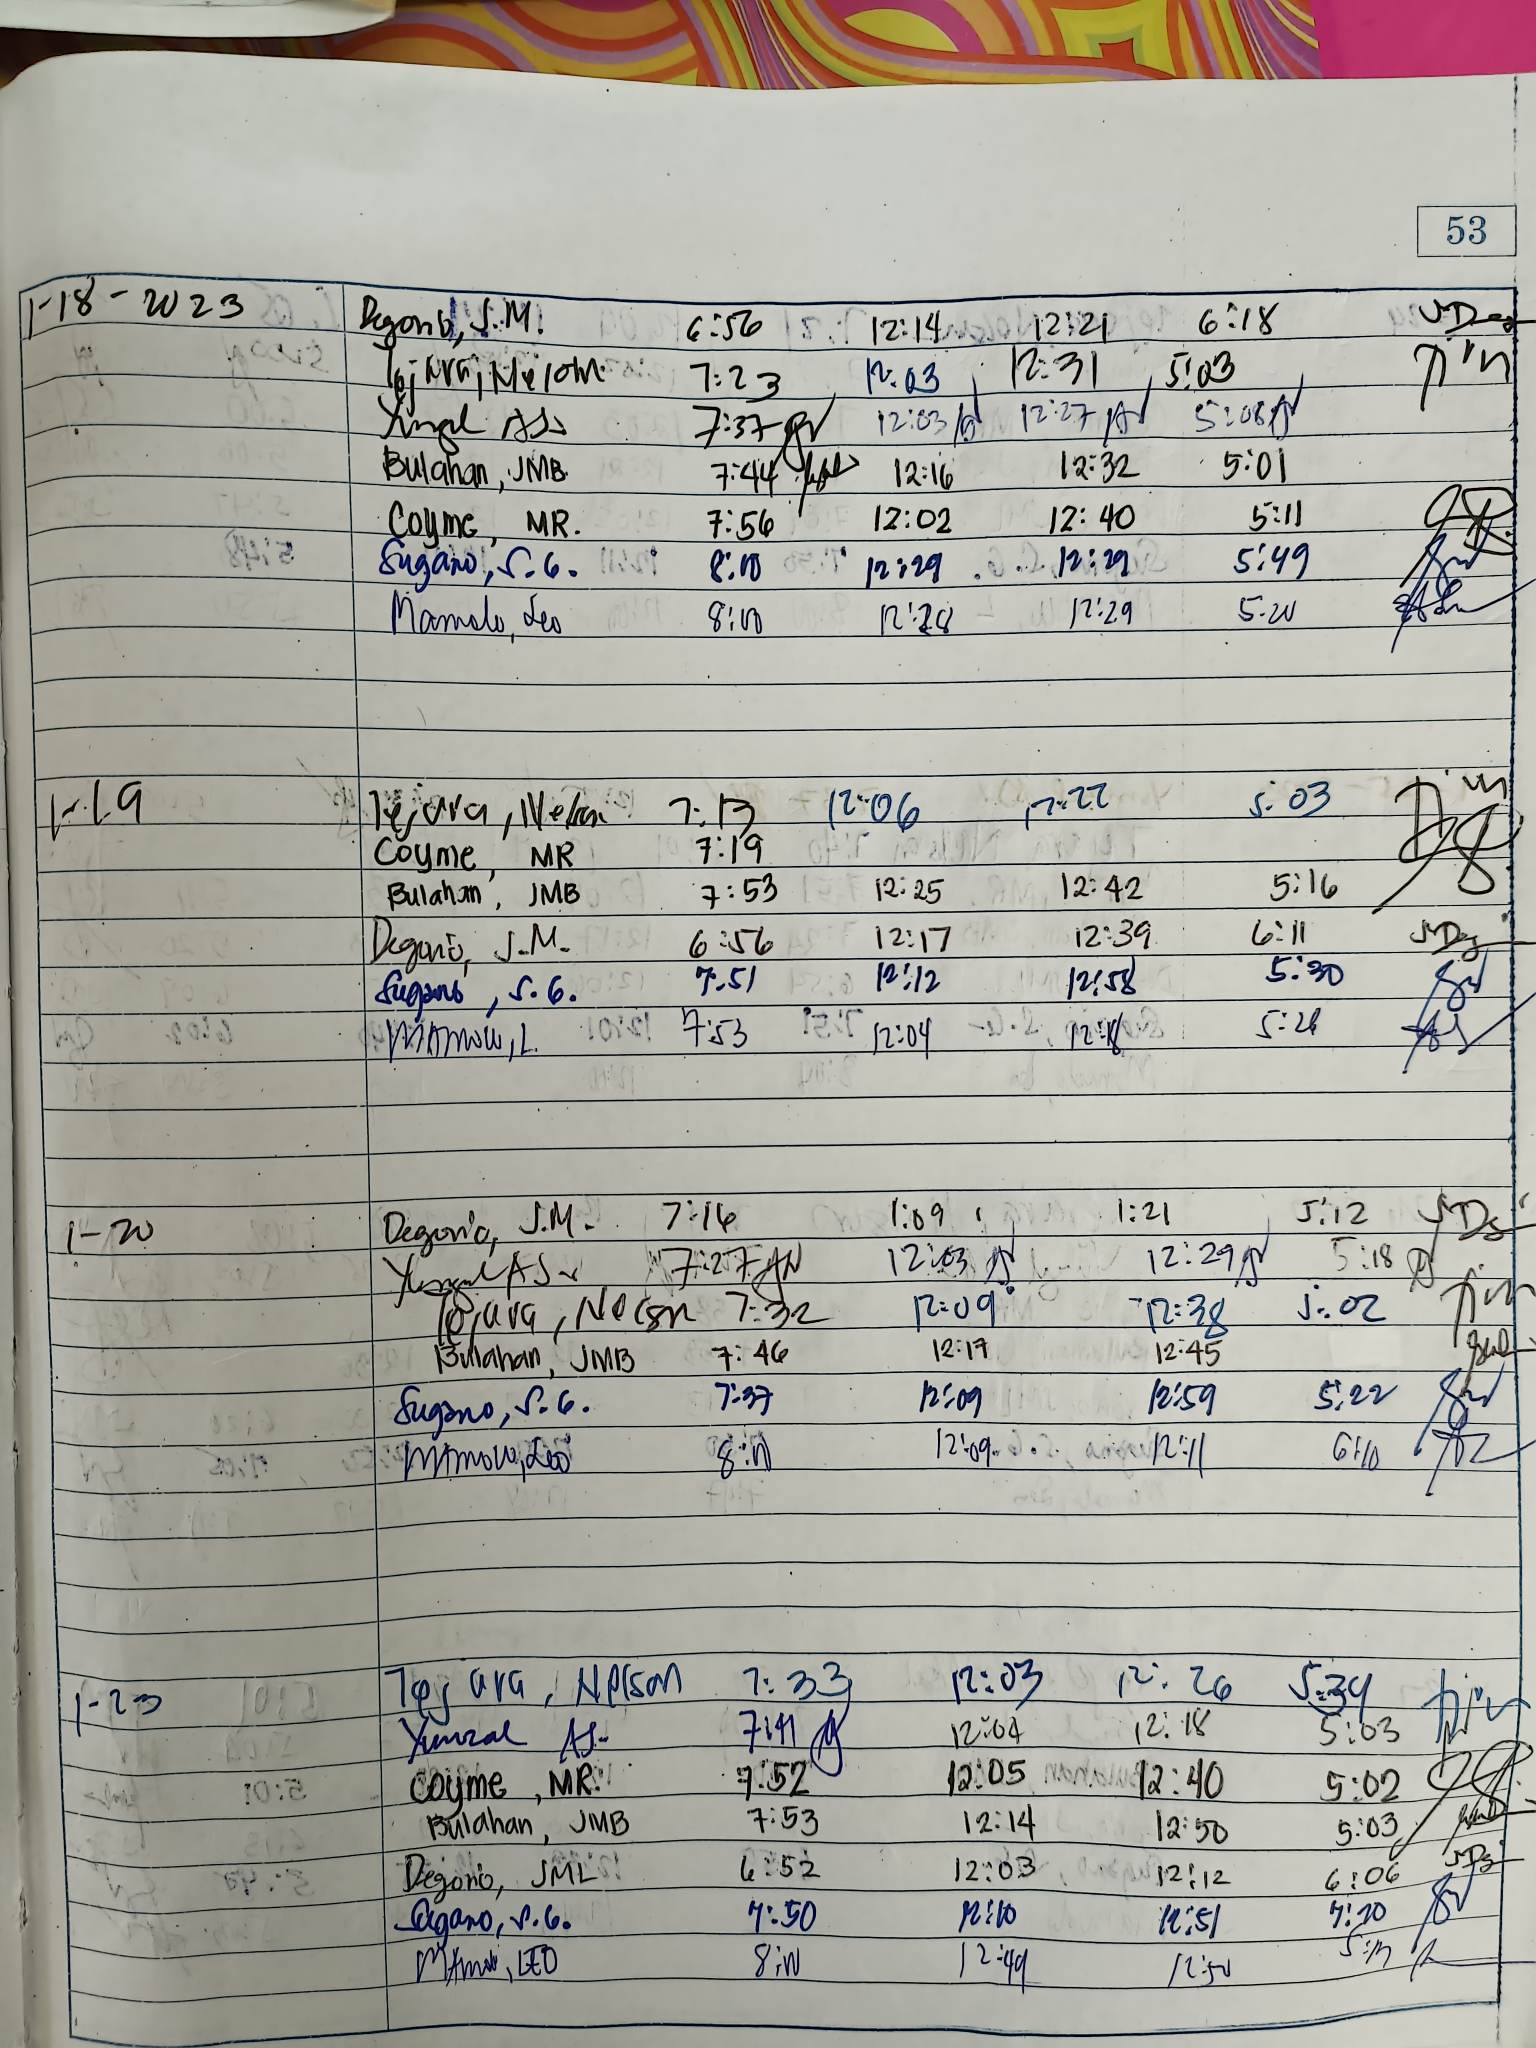 53
1-18-2023 Degorio, J.M. 6:56 12:14 12:21 6:18
Tejara, Nelson 7:23 12:03 12:31 5:03
AS. 7:37 12:03 12:27 5:08
Bulahan, JMB 7:44 12:16 12:32 5:01
Coyme, MR. 7:56 12:02 12:40 5:11
Sugano, S.G. 8:00 12:29 12:29 5:49
Mamolo, Leo 8:00 12:28 12:29 5:20
1-19 Tejara, Nelson 7:13 12:06 12:22 5:03
Coyme, MR 7:19
Bulahan, JMB 7:53 12:25 12:42 5:16
Degorio, J.M. 6:56 12:17 12:39 6:11
Sugano, S.G. 7:51 12:12 12:58 5:30
Mamolo, L. 7:53 12:04 12:18
1-20 Degorio, J.M. 7:16 1:09 1:21 5:12
AS. 7:27 12:03 12:29 5:18
Tejara, Nelson 7:32 12:09 12:38 5:02
Bulahan, JMB 7:46 12:17 12:45
Sugano, S.G. 7:37 12:09 12:59 5:22
Mamolo, Leo 8:00 12:09 12:11 6:10
1-23 Tejara, Nelson 7:33 12:03 12:26 5:34
Yumzal AS. 7:41 12:04 12:18 5:03
Coyme, MR. 7:52 12:05 12:40 5:02
Bulahan, JMB 7:53 12:14 12:50 5:03
Degorio, JML 6:52 12:03 12:12 6:06
Sugano, S.G. 7:50 12:10 12:51 7:20
Mamolo, LEO 8:00 12:49 12:50